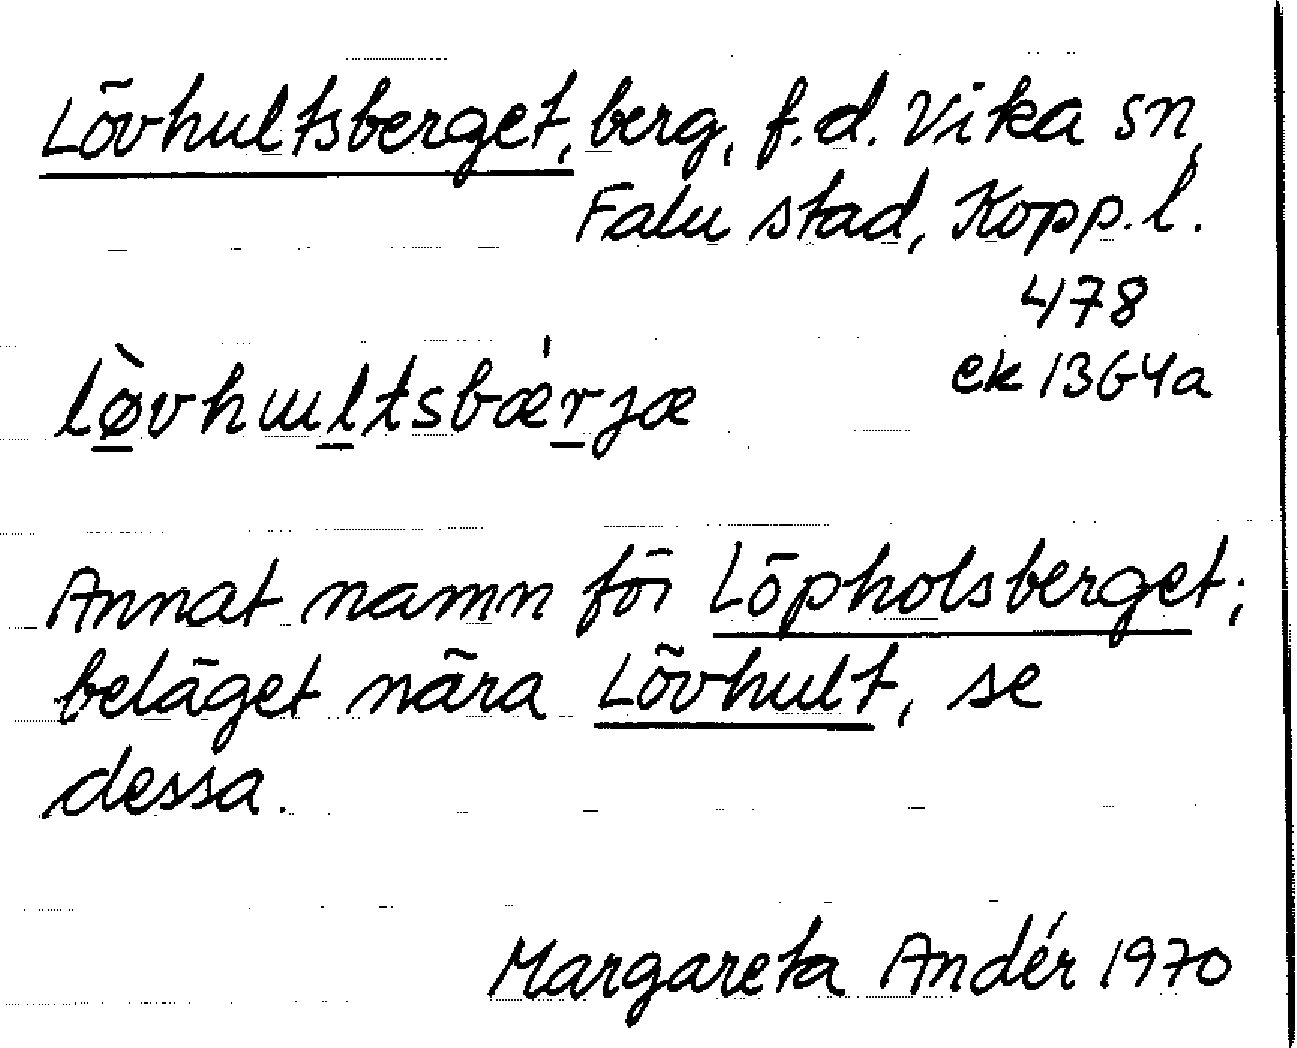 Lövhultsberget, berg, f.d. Vika sn,
Falu stad, Kopp.l.
478
ek 13G4a
lø̀vhɯltsbǽrjæ
Annat namn för Löpholsberget;
beläget nära Lövhult, se
dessa.
Margareta Andér 1970